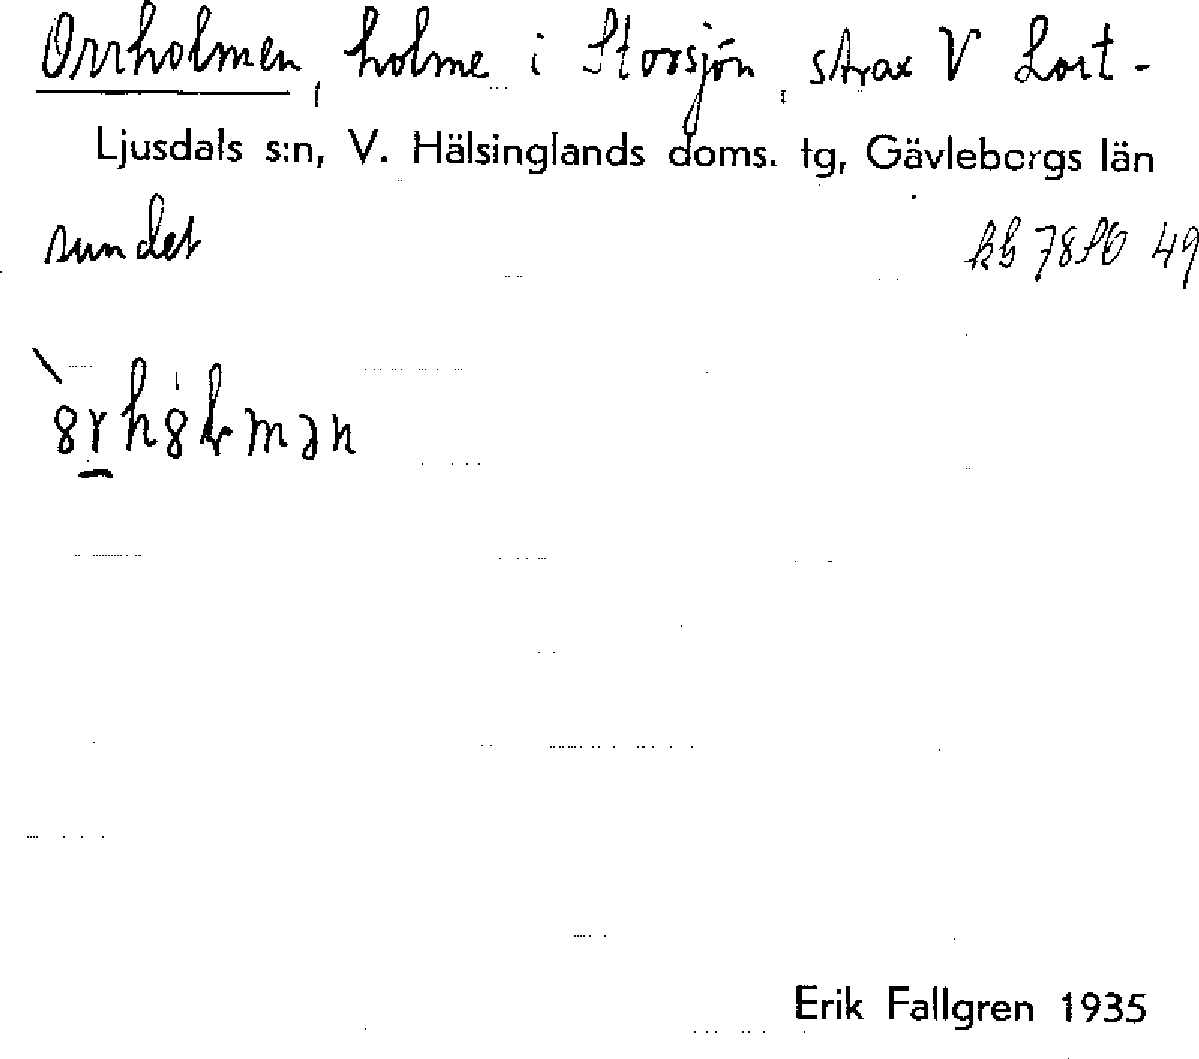 Orrholmen, holme i Storsjön, strax V Lort-
Ljusdals s:n, V. Hälsinglands doms. tg, Gävleborgs län
sundet
49
Erik Fallgren 1935